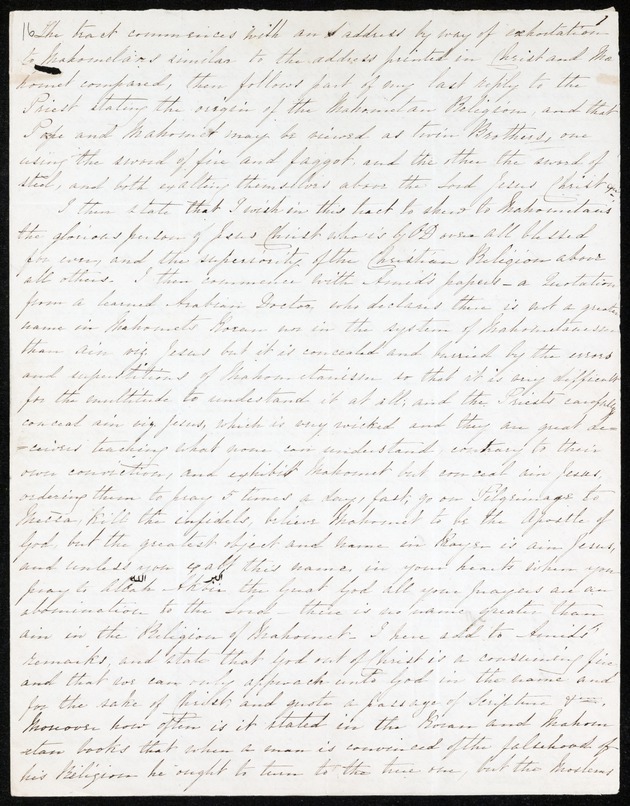 16 The tract commences with an address by way of exhortation
to Mahometans similar to the address printed in Christ and Ma
homet compared, then follows part of my last reply to the
Priest stating the origin of the Mahometan Religion, and that
Pope and Mahomet may be viewed as twin Brothers, one
using the sword of fire and faggot, and the other the sword of
steel, and both exalting themselves above the Lord Jesus Christ &c
I then state that I wish in this tract to shew to Mahometans
the glorious person of Jesus Christ who is GOD over all blessed
for ever, and the superiority of the Christian Religion above
all others. I then commence with Amid's papers - a Quotation
from a learned Arabian Doctor, who declares there is not a greater
name in Mahomets Koran nor in the system of Mahometanism
than ain viz. Jesus but it is concealed and buried by the errors
and superstitions of Mahometanism so that it is very difficult
for the multitude to understand it at all, and the Priests carefully
conceal ain viz Jesus, which is very wicked and they are great de-
-ceivers teaching what none can understand, contrary to their
own conviction, and exhibit Mahomet but conceal ain Jesus,
ordering them to pray 5 times a day, fast, go on Pilgrimage to
Mecca, kill the infidels, believe Mahomet to be the Apostle of
God, but the greatest object and name in Prayer is ain Jesus,
and unless you call this name in your hearts when you
الله اكبر
pray to Allah the Great God all your prayers are an
abomination to the Lord - there is no name greater than
ain in the Religion of Mahomet - I here add to Amid's
remarks, and state that God out of Christ is a consuming fire
and that we can only approach unto God in the name and
for the sake of Christ, and quote a passage of Scripture &c.
Moreover how often is it stated in the Koran and Mahom
etan books that when a man is convinced of the falsehood of
his Religion he ought to turn to the true one, but the Moslems